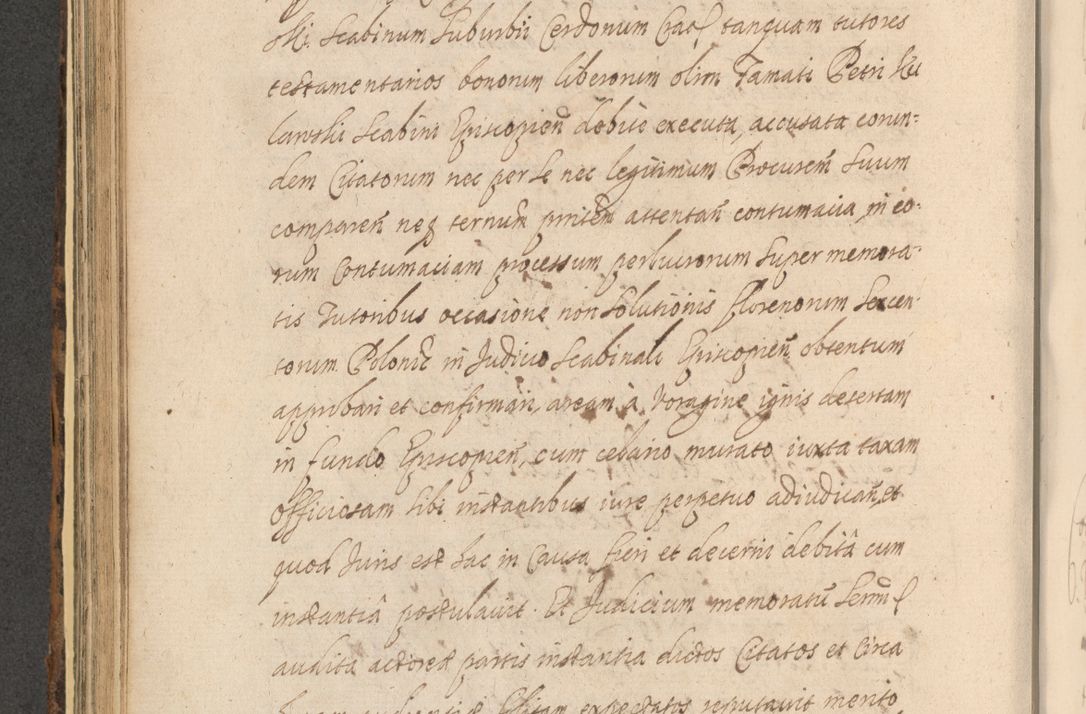 ski Scabinum Suburbii Cerdonum Crac tanquam tutores
testamentarios bonorum liberorum olim Tamati Petri Ku
lawski Scabini Episcopień debite executa, accusata eorun-
dem Citatorum nec per se nec legitimum Procurem̃ suum
compareñ neq ternum̃ priteñ attentañ contumacia, in eo-
rum Contumaciam processum perlucrorum super memora-
tis Tutoribus occasione non solutionis florenorum sexcen-
torum Polonic̃ in Judicio Scabinali Episcopień obtentum
approbari et confirmari, aream à voragine ignis desertam
in fundo Episcopień, cum celario murato iuxta taxam
Officiosam sibi instantibus iure perpetuo adiudicañ, et
quod Juris est hac in Causa fieri et decerni debitâ cum
instantiâ postulavit. Et Judicium memoratũ
audita actoreæ partis instantia dictos Citatos et circa
expectatos reputavit merito